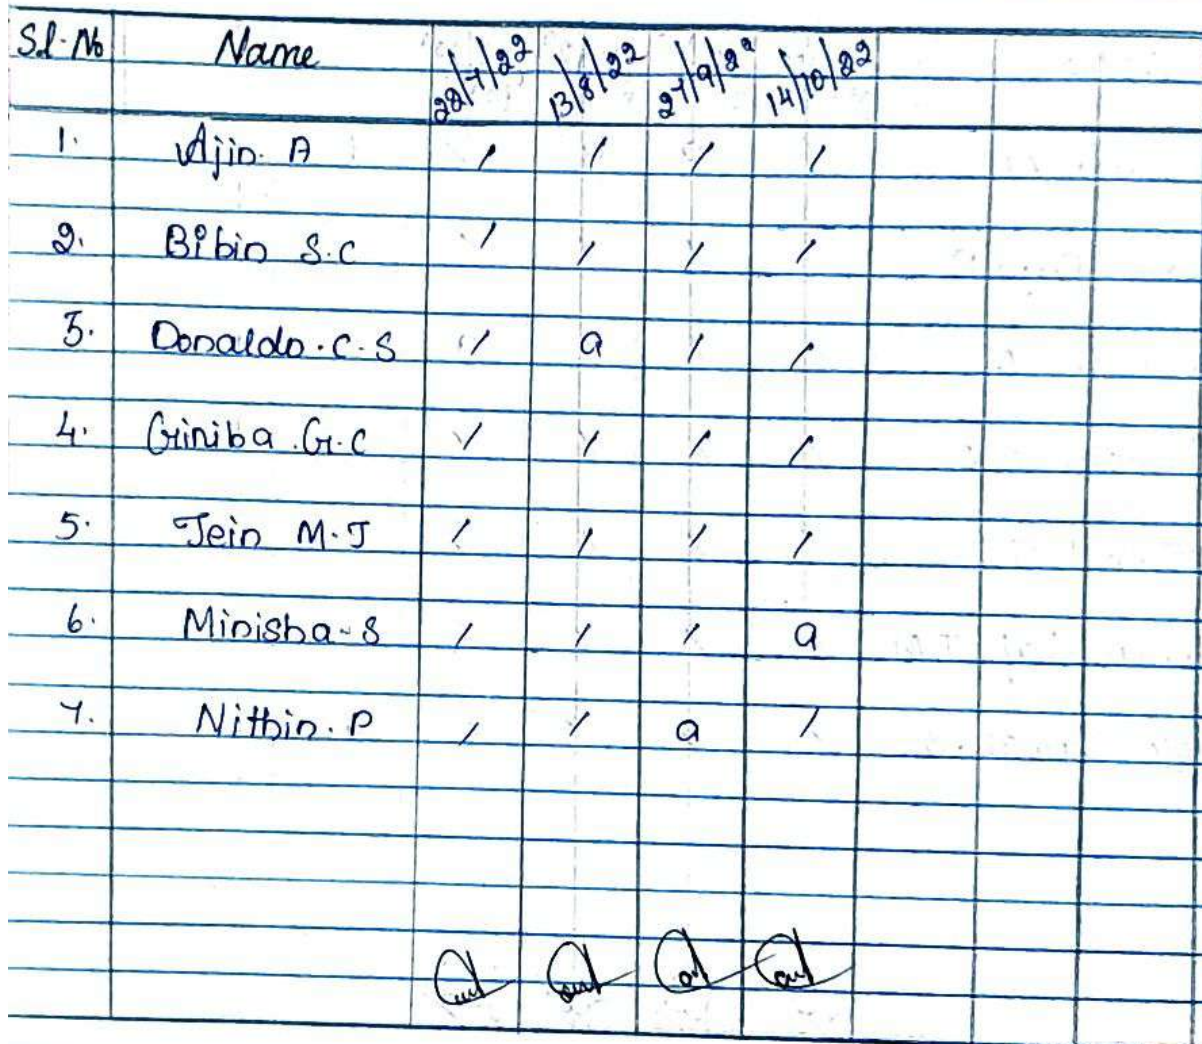 Sl. No Name 22/7/22 13/8/22 27/9/22 14/10/22
1. Ajin. A / / / /
2. Bibin S.C / / / /
3. Donaldo. C. S / a / /
4. Giniba. G. C / / / /
5. Jein M. J / / / /
6. Minisha - S / / / a
7. Nithin. P / / a /